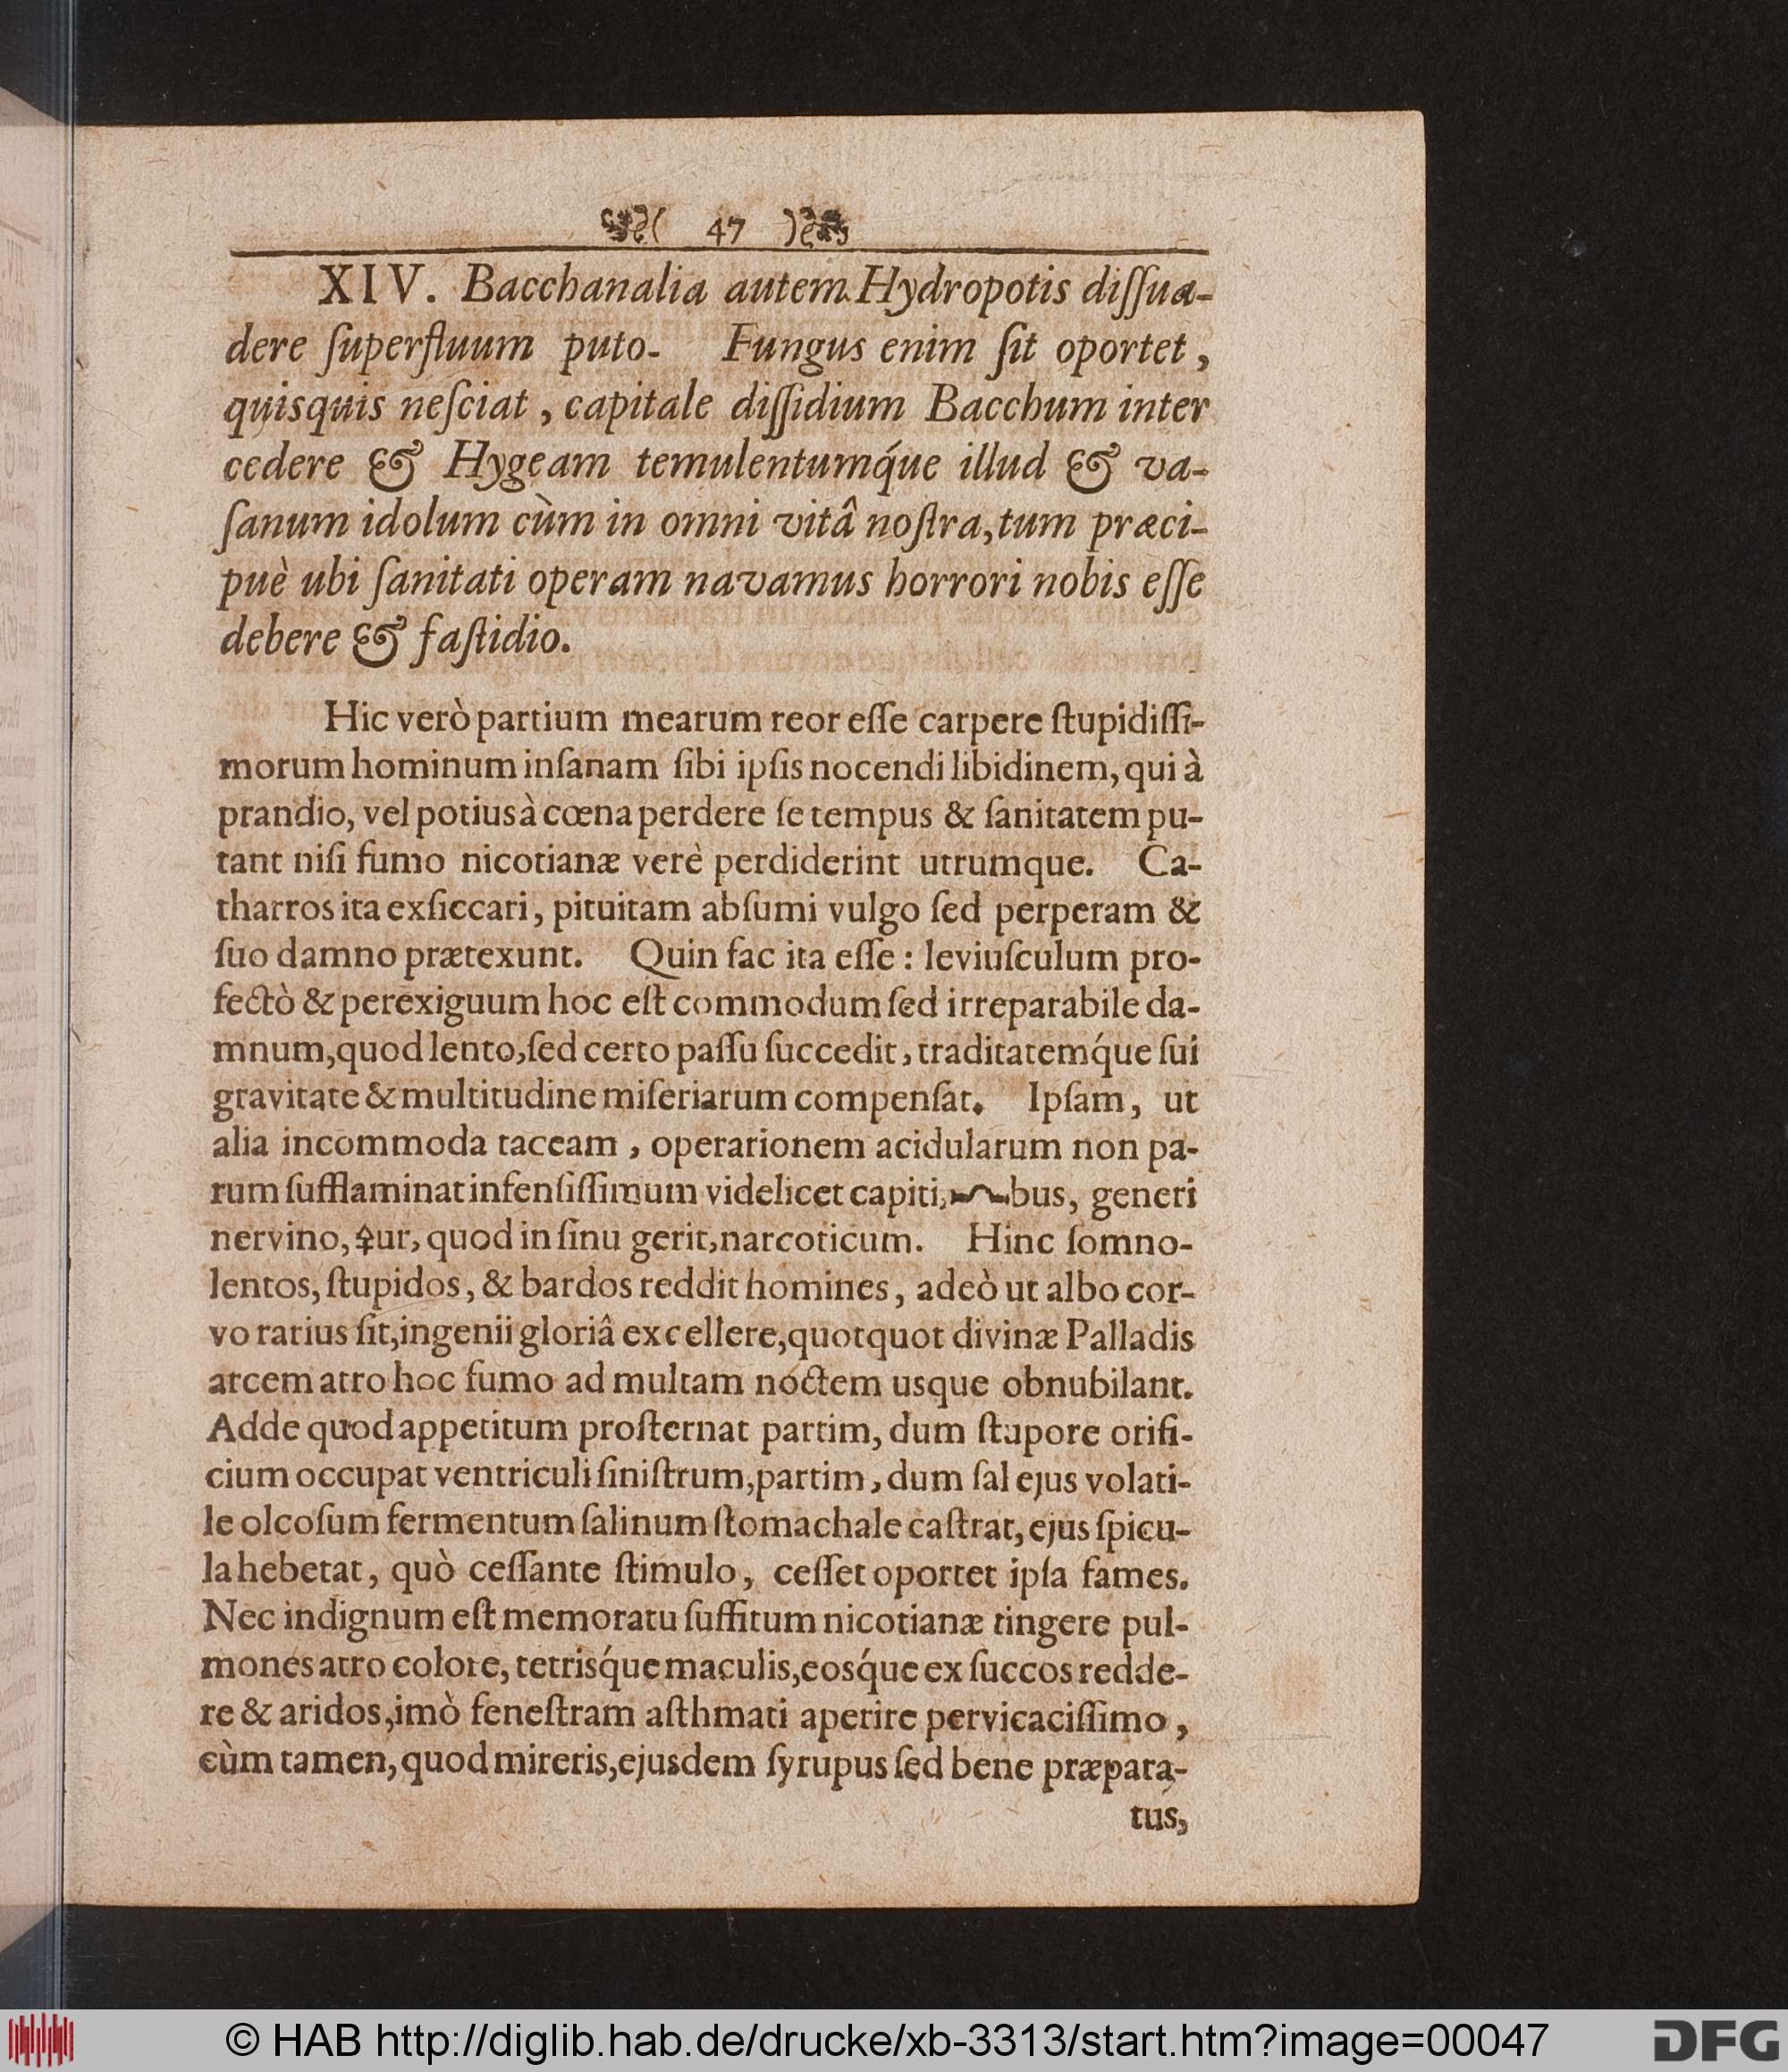 47
XIV. Bacchanalia autem Hydropotis diſſua-
dere ſuperfluum puto. Fungus enim ſit oportet,
quisquis neſciat, capitale diſſidium Bacchum inter
cedere & Hygeam temulentumq́ue illud & va-
ſanum idolum cùm in omni vitâ noſtra, tum præci-
puè ubi ſanitati operam navamus horrori nobis eſſe
debere & faſtidio.
Hic verò partium mearum reor eſſe carpere ſtupidiſſi-
morum hominum inſanam ſibi ipſis nocendi libidinem, qui à
prandio, vel potius à cœna perdere ſe tempus & ſanitatem pu-
tant niſi fumo nicotianæ verè perdiderint utrumque. Ca-
tharros ita exſiccari, pituitam abſumi vulgo ſed perperam &
ſuo damno prætexunt. Quin fac ita eſſe: leviuſculum pro-
fectò & perexiguum hoc eſt commodum ſed irreparabile da-
mnum, quod lento, ſed certo paſſu ſuccedit, traditatemq́ue ſui
gravitate & multitudine miſeriarum compenſat. Ipſam, ut
alia incommoda taceam, operationem acidularum non pa-
rum ſufflaminat infenſiſſimum videlicet capiti, bus, generi
nervino, 🜍ur, quod in ſinu gerit, narcoticum. Hinc ſomno-
lentos, ſtupidos, & bardos reddit homines, adeò ut albo cor-
vo rarius ſit, ingenii gloriâ excellere, quotquot divinæ Palladis
arcem atro hoc fumo ad multam nóctem usque obnubilant.
Adde quod appetitum proſternat partim, dum ſtupore orifi-
cium occupat ventriculi ſiniſtrum, partim, dum ſal ejus volati-
le olcoſum fermentum ſalinum ſtomachale caſtrat, ejus ſpicu-
la hebetat, quò ceſſante ſtimulo, ceſſet oportet ipſa fames.
Nec indignum eſt memoratu ſuffitum nicotianæ tingere pul-
mones atro colore, tetrisq́ue maculis, eosq́ue exſuccos redde-
re & aridos, imò feneſtram aſthmati aperire pervicaciſſimo,
cùm tamen, quod mireris, ejusdem ſyrupus ſed bene præpara-
tus,
© HAB http://diglib.hab.de/drucke/xb-3313/start.htm?image=00047
DFG